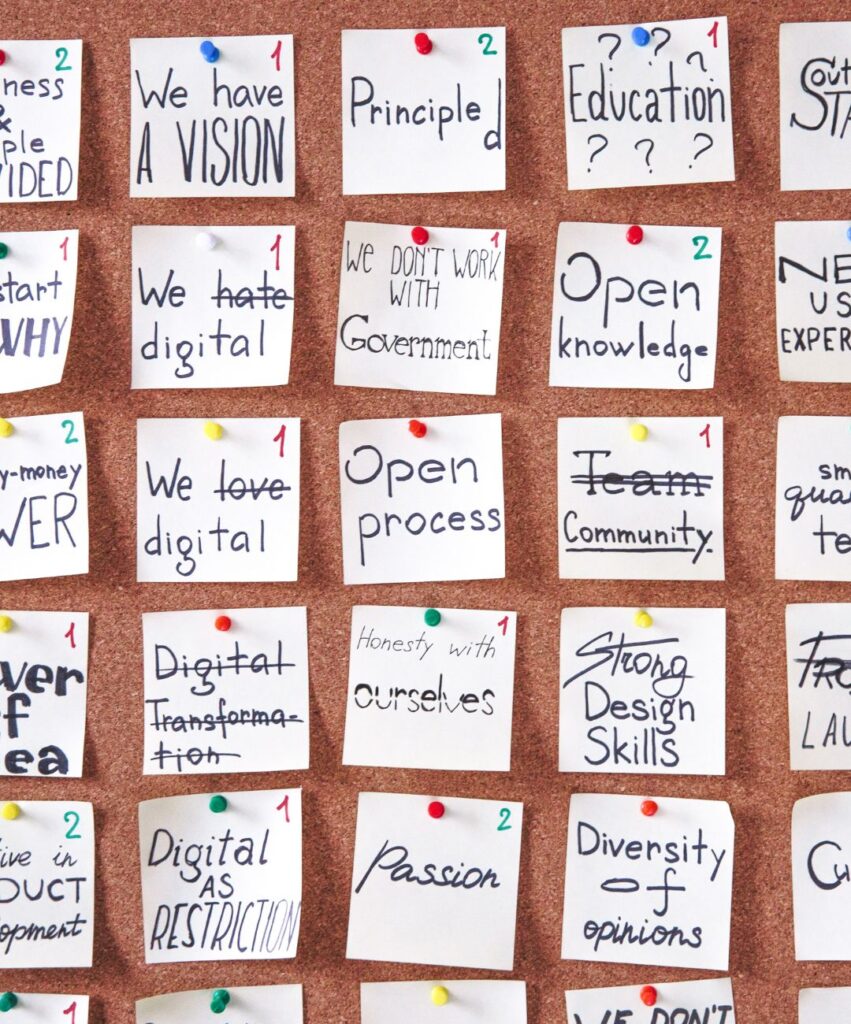 2
ness
&
ple
VIDED
1
We have
A VISION
2
Principled
1
? ? ?
Education
? ? ?
South
STA
1
start
WHY
1
We hate
digital
1
WE DON'T WORK
WITH
Government
2
Open
knowledge
NE
US
EXPER
2
y-money
WER
1
We love
digital
Open
process
1
Team
Community.
sm
qua
te
1
wer
of
ea
Digital
Transforma-
tion
1
Honesty with
ourselves
Strong
Design
Skills
FRO
LAU
2
ive in
DUCT
opment
1
Digital
AS
RESTRICTION
2
Passion
Diversity
of
opinions
Cu
1
WE DON'T